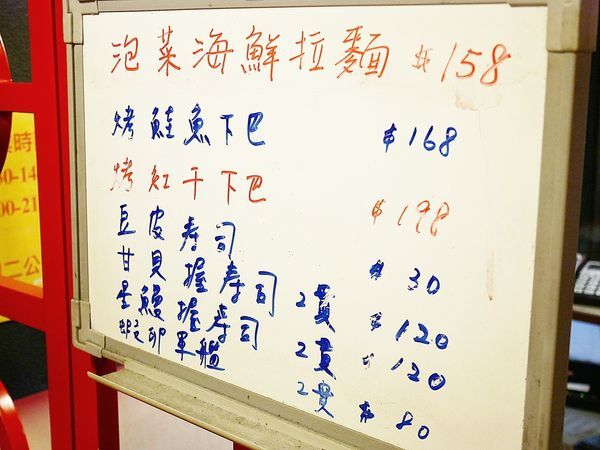 泡菜海鮮拉麵 $158
烤鮭魚下巴 $168
烤紅干下巴 $198
豆皮壽司 $30
甘貝握壽司 2貫 $120
星鰻握壽司 2貫 $120
蝦卵軍艦 2貫 $80
時
0-14
00-21
二公